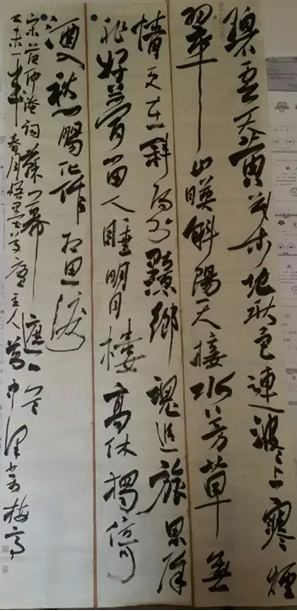 碧雲天黄葉地秋色連波々上寒煙
翠山映斜陽天接水芳草無
情更在斜陽外黯鄉魂追旅思
非好夢留人睡明月樓高休獨倚
酒入愁腸化作相思淚
宋范仲淹詞蘇幕遮
乙未年春月